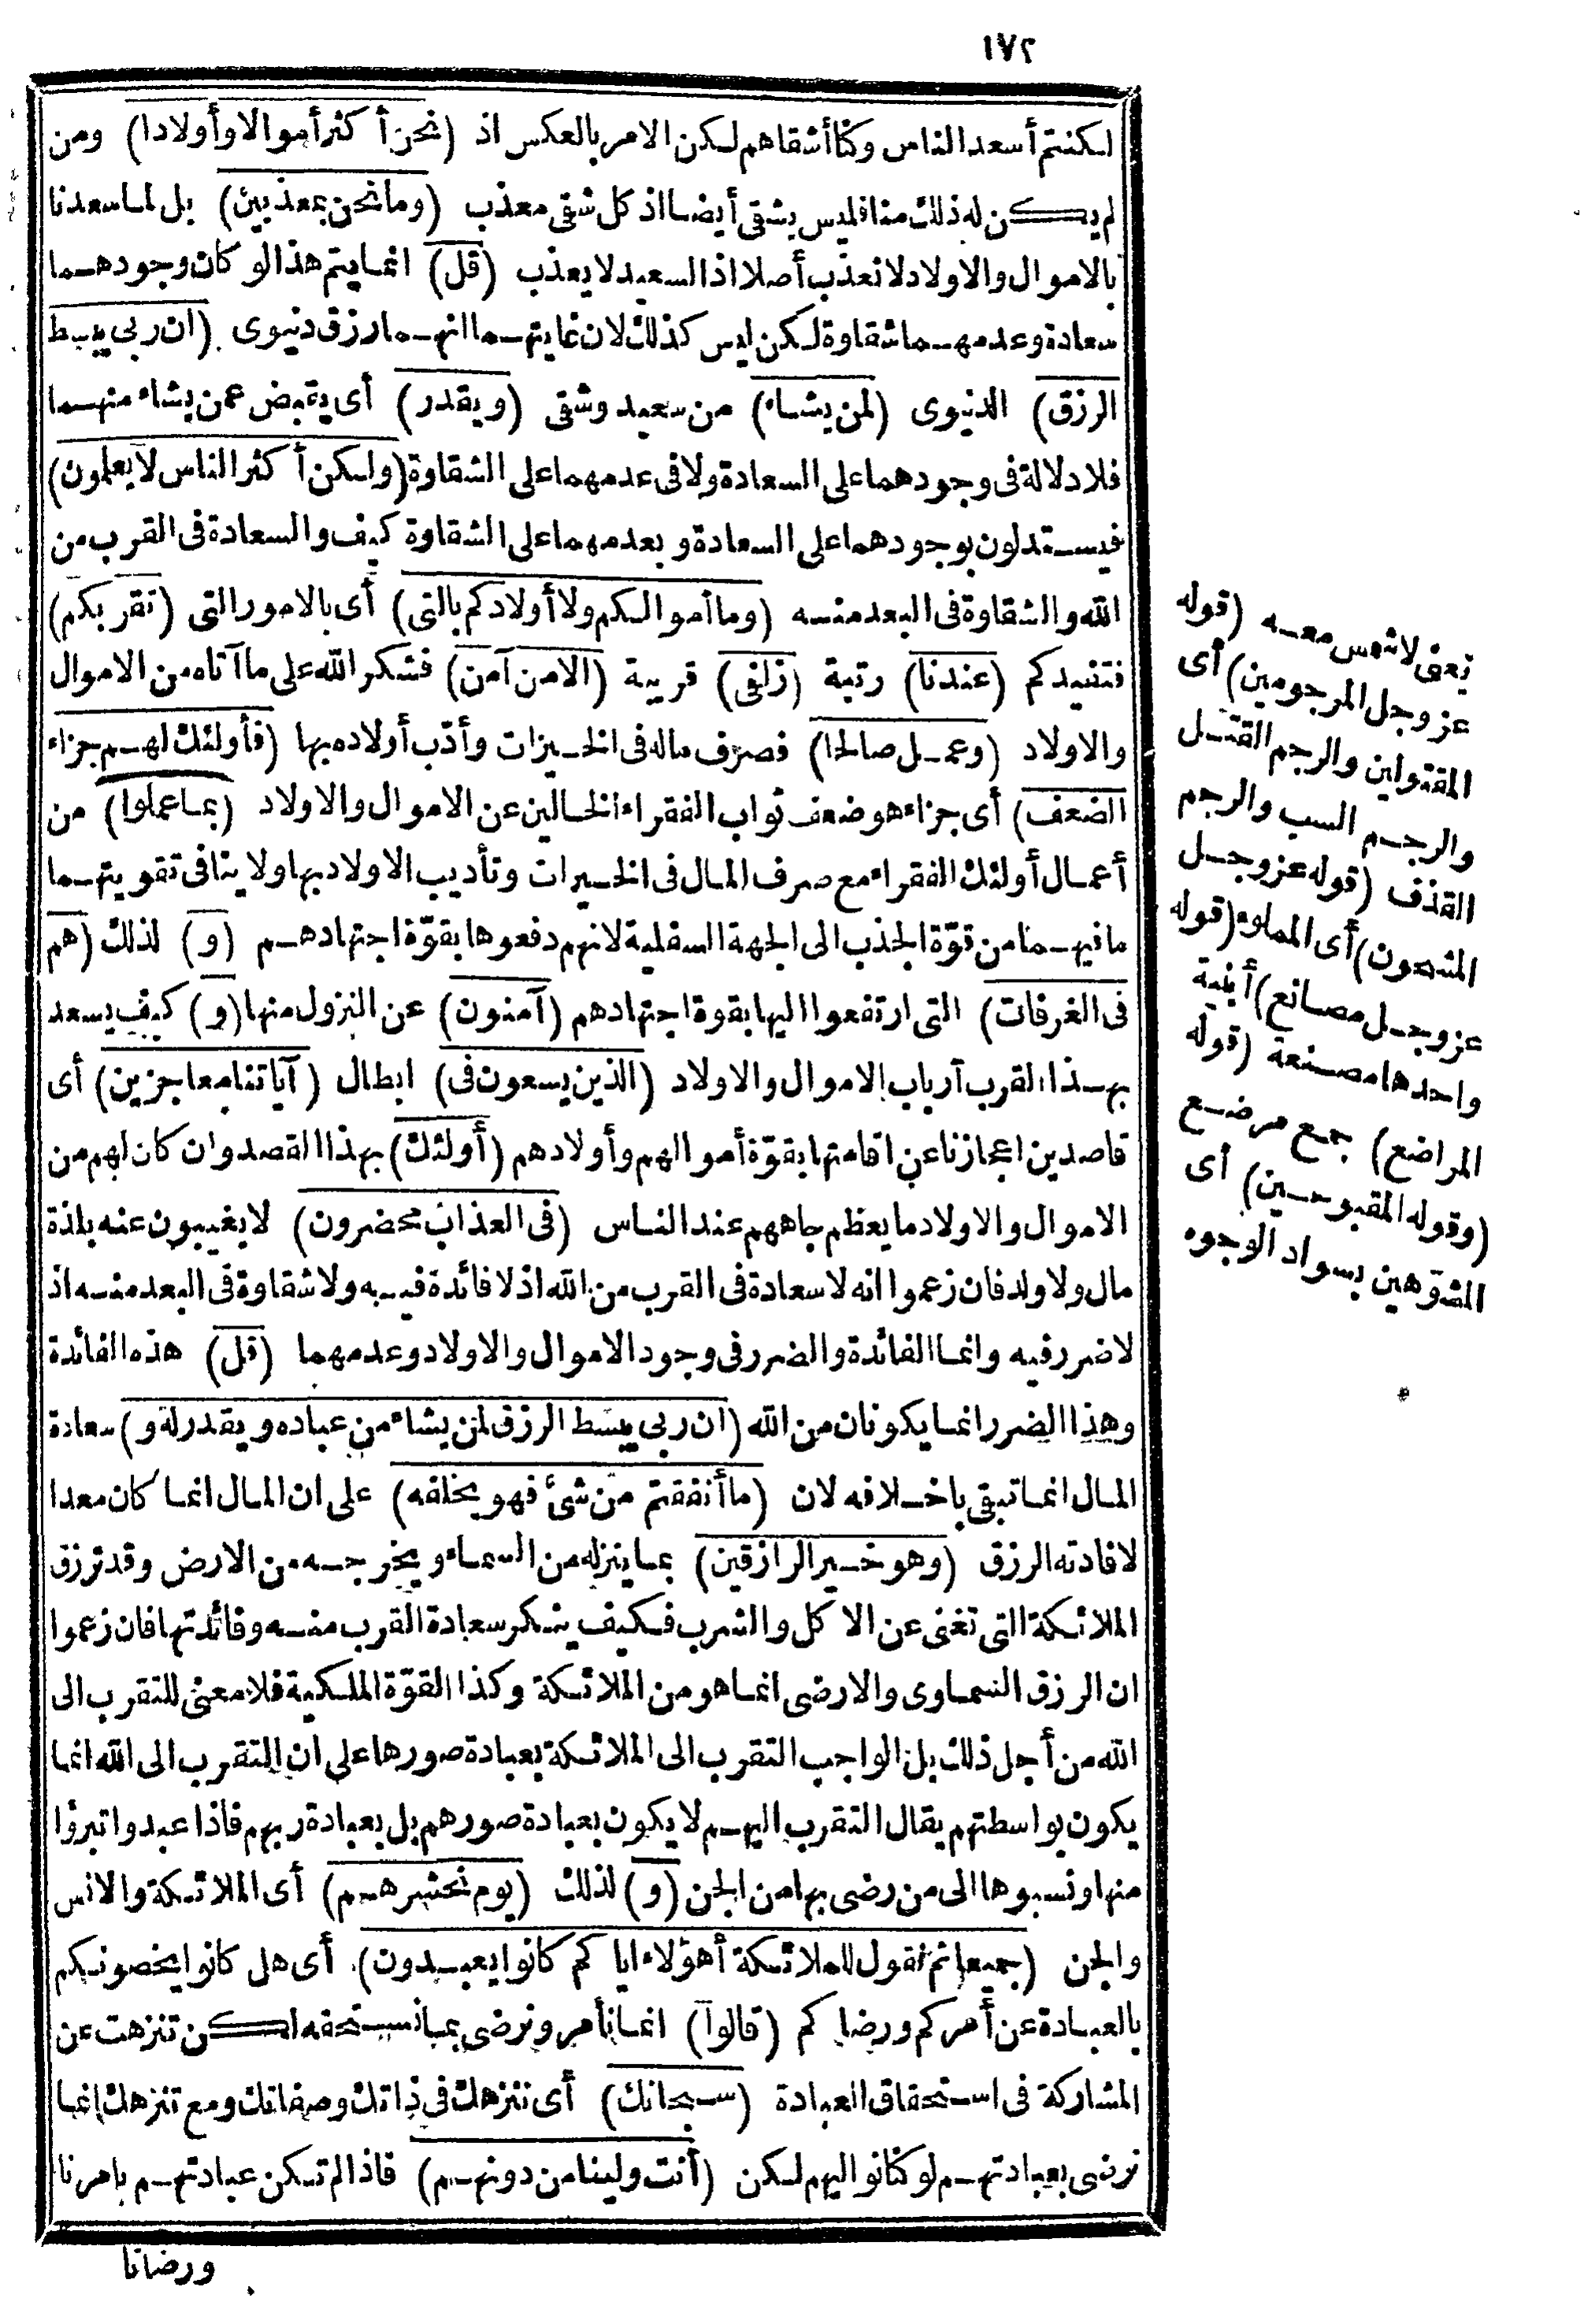 ١٧٢
لكنتم أسعد الناس وكنا أشقاهم لكن الامر بالعكس اذ (نحن أكثر أموالا وأولادا) ومن
لم يكن له ذلك منا فليس بشقى أيضا اذ كل شقى معذب (وما نحن بمعذبين) بل لما سعدنا
بالاموال والاولاد لا نعذب أصلا اذ السعيد لا يعذب (قل) انما يتم هذا لو كان وجودهما
سعادة وعدمهما شقاوة لكن ليس كذلك لان غايتهما انهما رزق دنيوى (ان ربى يبسط
الرزق) الدنيوى (لمن يشاء) من سعيد وشقى (ويقدر) أى يقبض عمن يشاء منهما
فلا دلالة فى وجودهما على السعادة ولا فى عدمهما على الشقاوة (ولكن أكثر الناس لا يعلمون)
فيستدلون بوجودهما على السعادة وبعدمهما على الشقاوة كيف والسعادة فى القرب من
الله والشقاوة فى البعد منه (وما أموالكم ولا أولادكم بالتى) أى بالامور التى (تقربكم)
فتفيدكم (عندنا) رتبة (زلفى) قريبة (الا من آمن) فشكر الله على ما آتاه من الاموال
والاولاد (وعمل صالحا) فصرّف ماله فى الخيرات وأدّب أولاده بها (فأولئك لهم جزاء
الضعف) أى جزاء هو ضعف ثواب الفقراء الخالين عن الاموال والاولاد (بما عملوا) من
أعمال أولئك الفقراء مع صرف المال فى الخيرات وتأديب الاولاد بها ولا ينافى تقويتهما
ما فيهما من قوّة الجذب الى الجهة السفلية لانهم دفعوها بقوّة اجتهادهم (و) لذلك (هم
فى الغرفات) التى ارتفعوا اليها بقوة اجتهادهم (آمنون) عن النزول منها (و) كيف يسعد
بهذا القرب أرباب الاموال والاولاد (الذين يسعون فى) ابطال (آياتنا معاجزين) أى
قاصدين اعجازنا عن اقامتها بقوّة أموالهم وأولادهم (أولئك) بهذا القصد وان كان لهم من
الاموال والاولاد ما يعظم جاههم عند الناس (فى العذاب محضرون) لا يغيبون عنه بلذة
مال ولا ولد فان زعموا انه لا سعادة فى القرب من الله اذ لا فائدة فيه ولا شقاوة فى البعد منه اذ
لا ضرر فيه وانما الفائدة والضرر فى وجود الاموال والاولاد وعدمهما (قل) هذه الفائدة
وهذا الضرر انما يكونان من الله (ان ربى يبسط الرزق لمن يشاء من عباده ويقدر له و) سعادة
المال انما تبقى باخلافه لان (ما أنفقتم من شئ فهو يخلفه) على ان المال انما كان معدا
لافادته الرزق (وهو خير الرازقين) بما ينزله من السماء ويخرجه من الارض وقد ترزق
الملائكة التى تغنى عن الاكل والشرب فكيف ينكر سعادة القرب منه وفائدتها فان زعموا
ان الرزق السماوى والارضى انما هو من الملائكة وكذا القوّة الملكية فلا معنى للتقرب الى
الله من أجل ذلك بل الواجب التقرب الى الملائكة بعبادة صورها على ان التقرب الى الله انما
يكون بواسطتهم يقال التقرب اليهم لا يكون بعبادة صورهم بل بعبادة ربهم فاذا عبدوا تبرؤا
منها ونسبوها الى من رضى بها من الجن (و) لذلك (يوم نحشرهم) أى الملائكة والانس
والجن (جميعا ثم نقول للملائكة أهؤلاء اياكم كانوا يعبدون) أى هل كانوا يخصونكم
بالعبادة عن أمركم ورضاكم (قالوا) انما نأمر ونرضى بما نستحقه لكن تنزهت عن
المشاركة فى استحقاق العبادة (سبحانك) أى ننزهك فى ذاتك وصفاتك ومع تنزهك انما
نرضى بعبادتهم لو كنا نواليهم لكن (أنت ولينا من دونهم) فاذا لم تكن عبادتهم بامرنا
ورضانا
يعنى لا شمس معه (قوله
عز وجل المرجومين) أى
المقتولين والرجم القتل
والرجم السب والرجم
القذف (قوله عز وجل
المشحون) أى المملوء (قوله
عز وجل مصانع) أبنية
واحدها مصنعة (قوله
المراضع) جمع مرضع
(وقوله المقبوحين) أى
المشوّهين بسواد الوجوه